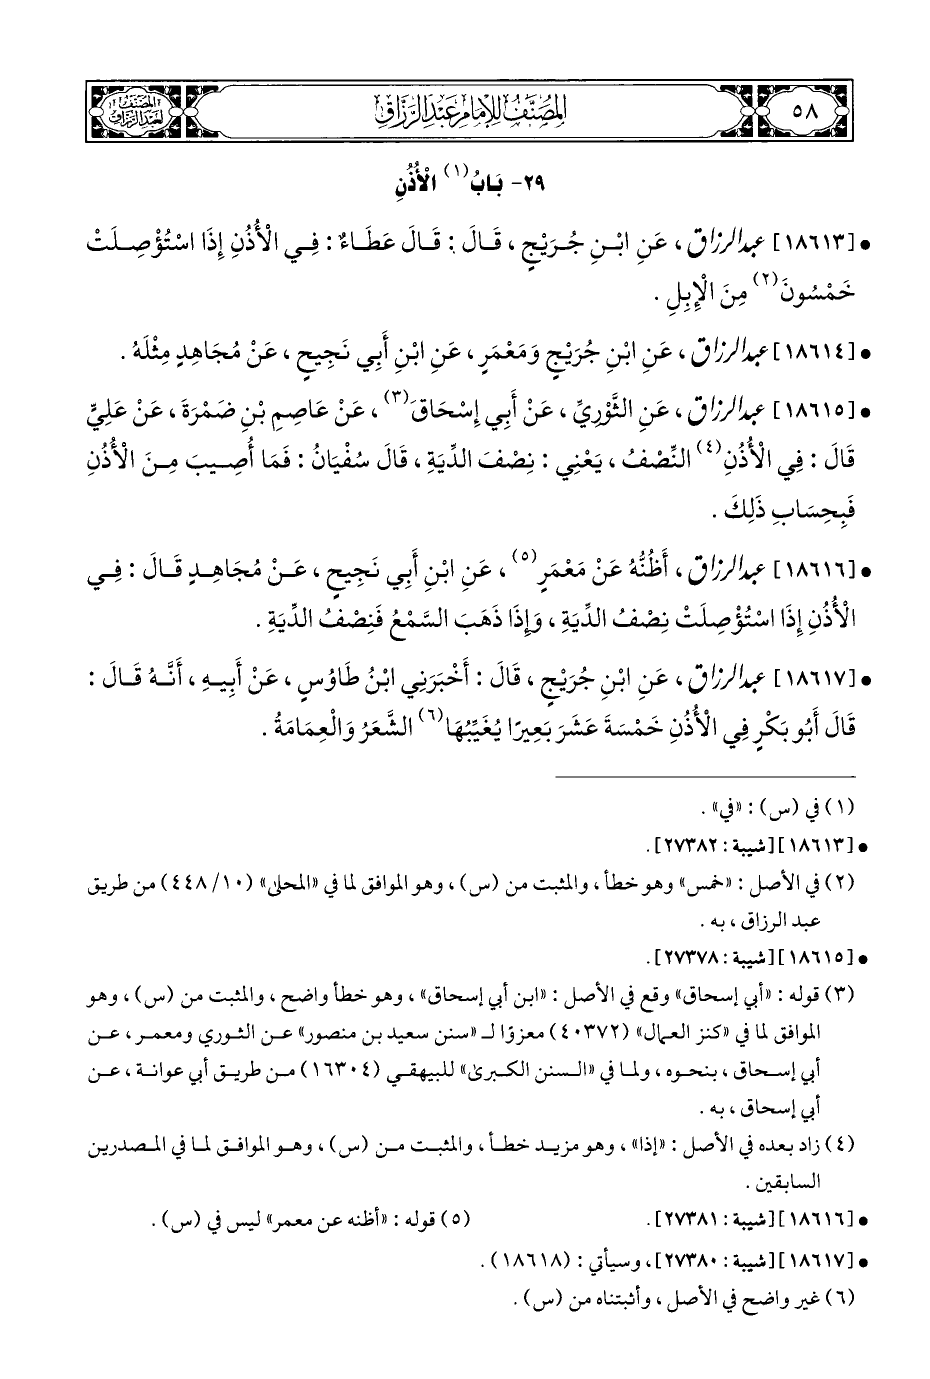 ٥٨
المصنف للإمام عبد الرزاق
المصنف
لعبد الرزاق
٢٩- بَابُ(١) الْأُذُنِ
• [١٨٦١٣] عبد الرزاق، عَنِ ابْنِ جُرَيْجٍ، قَالَ: قَالَ عَطَاءٌ: فِي الْأُذُنِ إِذَا اسْتُؤْصِلَتْ
خَمْسُونَ(٢) مِنَ الْإِبِلِ.
• [١٨٦١٤] عبد الرزاق، عَنِ ابْنِ جُرَيْجٍ وَمَعْمَرٍ، عَنِ ابْنِ أَبِي نَجِيحٍ، عَنْ مُجَاهِدٍ مِثْلَهُ.
• [١٨٦١٥] عبد الرزاق، عَنِ الثَّوْرِيِّ، عَنْ أَبِي إِسْحَاقَ(٣)، عَنْ عَاصِمِ بْنِ ضَمْرَةَ، عَنْ عَلِيٍّ
قَالَ: فِي الْأُذُنِ(٤) النِّصْفُ، يَعْنِي: نِصْفَ الدِّيَةِ، قَالَ سُفْيَانُ: فَمَا أُصِيبَ مِنَ الْأُذُنِ
فَبِحِسَابِ ذَلِكَ.
• [١٨٦١٦] عبد الرزاق، أَظُنُّهُ عَنْ مَعْمَرٍ(٥)، عَنِ ابْنِ أَبِي نَجِيحٍ، عَنْ مُجَاهِدٍ قَالَ: فِي
الْأُذُنِ إِذَا اسْتُؤْصِلَتْ نِصْفُ الدِّيَةِ، وَإِذَا ذَهَبَ السَّمْعُ فَنِصْفُ الدِّيَةِ.
• [١٨٦١٧] عبد الرزاق، عَنِ ابْنِ جُرَيْجٍ، قَالَ: أَخْبَرَنِي ابْنُ طَاوُسٍ، عَنْ أَبِيهِ، أَنَّهُ قَالَ:
قَالَ أَبُو بَكْرٍ فِي الْأُذُنِ خَمْسَةَ عَشَرَ بَعِيرًا يُغَيِّبُهَا(٦) الشَّعَرُ وَالْعِمَامَةُ.
(١) في (س): «في».
• [١٨٦١٣] [شيبة: ٢٧٣٨٢].
(٢) في الأصل: «خمس» وهو خطأ، والمثبت من (س)، وهو الموافق لما في «المحلى» (١٠/ ٤٤٨) من طريق
عبد الرزاق، به.
• [١٨٦١٥] [شيبة: ٢٧٣٧٨].
(٣) قوله: «أبي إسحاق» وقع في الأصل: «ابن أبي إسحاق»، وهو خطأ واضح، والمثبت من (س)، وهو
الموافق لما في «كنز العمال» (٤٠٣٧٢) معزوًا لـ «سنن سعيد بن منصور» عن الثوري ومعمر، عن
أبي إسحاق، بنحوه، ولما في «السنن الكبرى» للبيهقي (١٦٣٠٤) من طريق أبي عوانة، عن
أبي إسحاق، به.
(٤) زاد بعده في الأصل: «إذا»، وهو مزيد خطأ، والمثبت من (س)، وهو الموافق لما في المصدرين
السابقين.
• [١٨٦١٦] [شيبة: ٢٧٣٨١]. (٥) قوله: «أظنه عن معمر» ليس في (س).
• [١٨٦١٧] [شيبة: ٢٧٣٨٠]، وسيأتي: (١٨٦١٨).
(٦) غير واضح في الأصل، وأثبتناه من (س).